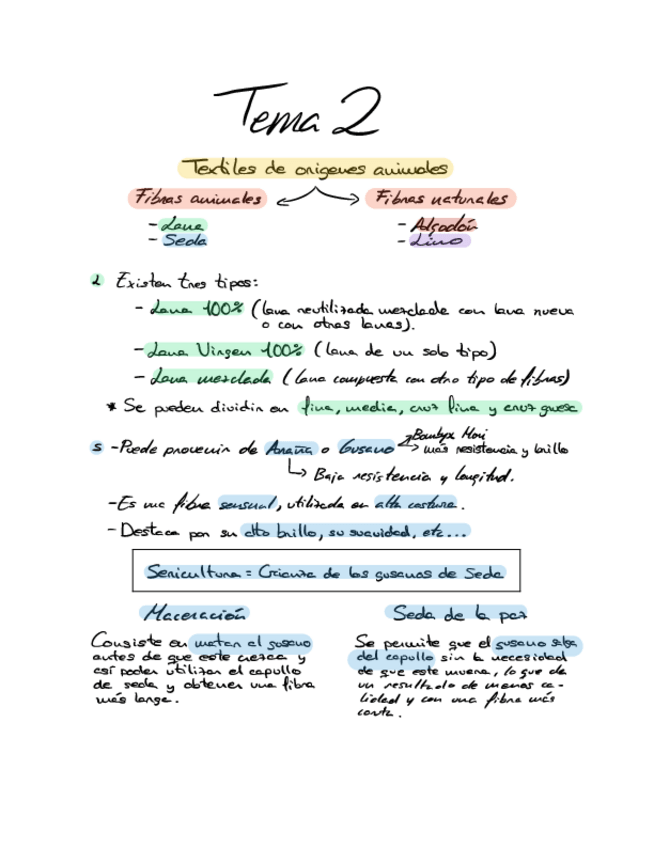 Tema 2
Textiles de orígenes animales
Fibras animales
Fibras naturales
- Lana
- Seda
- Algodón
- Lino
L Existen tres tipos:
- Lana 100% (lana reutilizada mezclada con lana nueva
o con otras lanas).
- Lana Virgen 100% (lana de un solo tipo)
- Lana mezclada (lana compuesta con otro tipo de fibras)
* Se pueden dividir en fina, media, cruz fina y cruz gruesa
S - Puede provenir de Araña o Gusano
Bombyx Mori
más resistencia y brillo
Baja resistencia y longitud.
- Es una fibra sensual, utilizada en alta costura.
- Destaca por su alto brillo, su suavidad, etc...
Sericultura = Crianza de los gusanos de Seda
Maceración
Consiste en matar el gusano
antes de que este crezca y
así poder utilizar el capullo
de seda y obtener una fibra
más larga.
Seda de la paz
Se permite que el gusano salga
del capullo sin la necesidad
de que este muera, lo que da
un resultado de menos ca-
lidad y con una fibra más
corta.